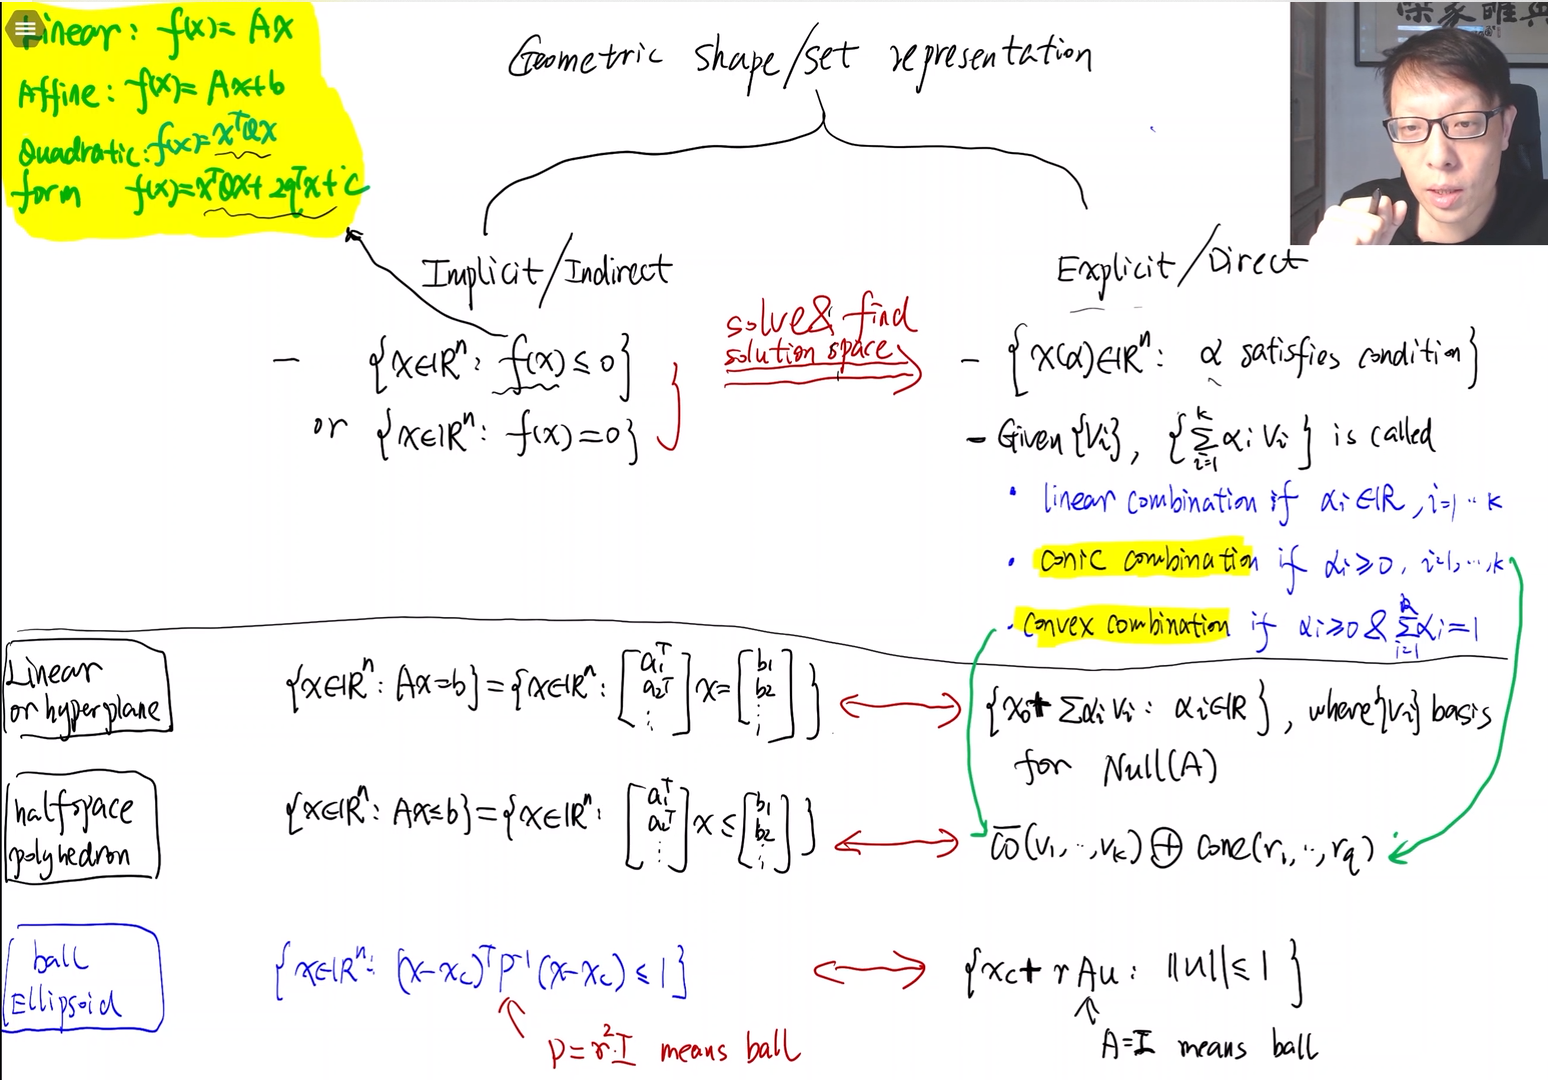 Linear: f(x)= Ax
Affine: f(x)= Ax+b
Quadratic: f(x)= xᵀQx
form f(x)=xᵀQx+ 2qᵀx+c
Geometric shape/set representation
Implicit/Indirect
- {x∈ℝⁿ: f(x) ≤ 0}
or {x∈ℝⁿ: f(x)=0}
solve & find
solution space
Explicit/Direct
- {x(α)∈ℝⁿ: α satisfies condition}
- Given {Vi}, {∑_{i=1}^{k} αi Vi} is called
• linear combination if αi∈ℝ, i=1 ·· k
• conic combination if αi≥0, i=1,···,k
• convex combination if αi≥0 & ∑_{i=1}^{k} αi=1
Linear or hyperplane
{x∈ℝⁿ: Ax=b} = {x∈ℝⁿ: [a₁ᵀ a₂ᵀ ⋮] x = [b₁ b₂ ⋮]}
{x₀+ ∑αi vi: αi∈ℝ}, where {vi} basis
for Null(A)
halfspace polyhedron
{x∈ℝⁿ: Ax≤b} = {x∈ℝⁿ: [a₁ᵀ a₂ᵀ ⋮] x ≤ [b₁ b₂ ⋮]}
c̅o̅(v₁,··,vₖ) ⊕ cone(r₁,··,r_q)
ball Ellipsoid
{x∈ℝⁿ: (x-x_c)ᵀ P⁻¹ (x-x_c) ≤ 1}
P=r²·I means ball
{x_c + r A u: ‖u‖ ≤ 1}
A=I means ball